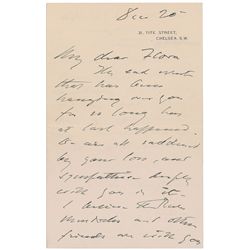 Dec 20
31, TITE STREET,
CHELSEA, S.W.
My dear Flora
The sad event
that has been
hanging over you
for so long has
at last happened.
We are all saddened
by your loss, and
sympathise deeply
with you in it.
I believe the
and other
friends are with you